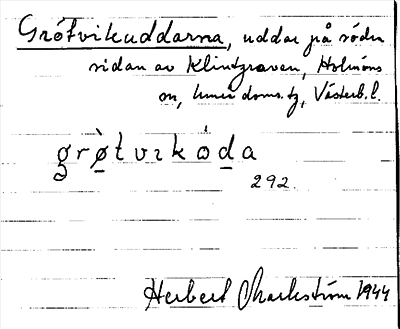 Grötvikuddarna, uddar på södra
sidan av Klintgraven, Holmöns
sn, Umeå doms.tg, Västerb.l.
grø̀tvɪkȯda
292.
Herbert Markström 1944